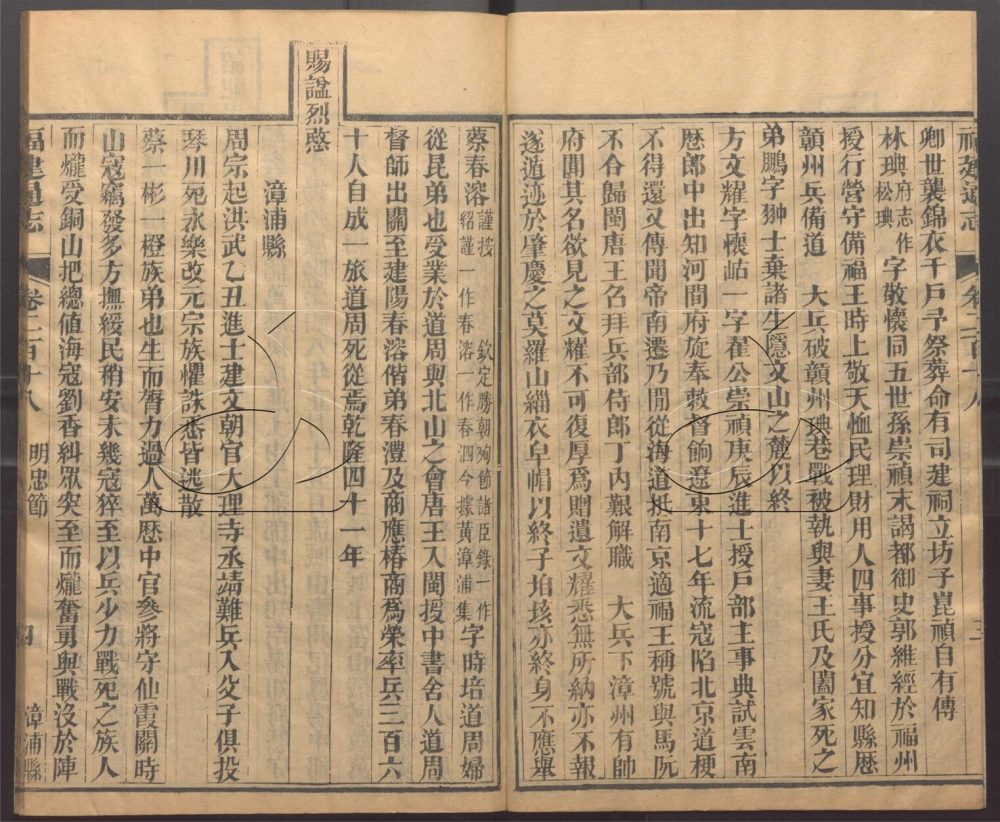 福建通志 卷二百十八 三
卿世襲錦衣千戶予祭葬命有司建祠立坊子崑禎自有傳
林㻞府志作松㻞字敬懷同五世孫崇禎末謁都御史郭維經於福州
授行營守備福王時上敬天恤民理財用人四事授分宜知縣歷
贛州兵備道 大兵破贛州㻞巷戰被執與妻王氏及闔家死之
弟鵬字翀士棄諸生隱文山之麓以終
方文耀字懷岵一字翟公崇禎庚辰進士授戶部主事典試雲南
歷郎中出知河間府旋奉敕督餉遼東十七年流寇陷北京道梗
不得還又傳聞帝南遷乃間從海道抵南京適福王稱號與馬阮
不合歸閩唐王召拜兵部侍郎丁內艱解職 大兵下漳州有帥
府聞其名欲見之文耀不可復厚爲贈遺文耀悉無所納亦不報
遂遁迹於肇慶之莫羅山緇衣皁帽以終子垍垓亦終身不應舉
蔡春溶謹按 欽定勝朝殉節諸臣錄一作紹謹一作春溶一作春泗今據黃漳浦集字時培道周婦
從昆弟也受業於道周與北山之會唐王入閩授中書舍人道周
督師出關至建陽春溶偕弟春灃及商應椿商爲榮率兵三百六
十人自成一旅道周死從焉乾隆四十一年
賜諡烈愍
漳浦縣
周宗起洪武乙丑進士建文朝官大理寺丞靖難兵入父子俱投
琴川死永樂改元宗族懼誅悉皆逃散
蔡一彬一橙族弟也生而膂力過人萬歷中官參將守仙霞關時
山寇竊發多方撫綏民稍安未幾寇猝至以兵少力戰死之族人
而爖受銅山把總値海寇劉香糾眾突至而爖奮勇與戰沒於陣
福建通志 卷二百十八 明忠節 四 漳浦縣